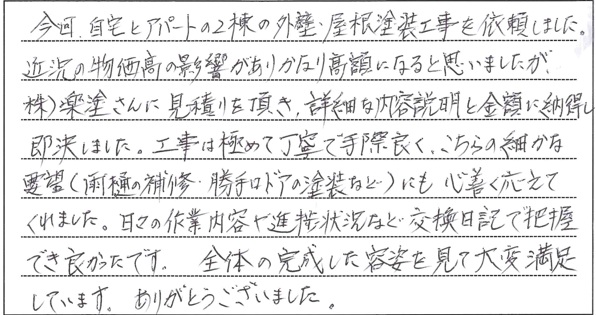 今回、自宅とアパートの2棟の外壁・屋根塗装工事を依頼しました。
近況の物価高の影響がありかなり高額になると思いましたが、
株)楽塗さんに見積りを頂き、詳細な内容説明と金額に納得し
即決しました。工事は極めて丁寧で手際良く、こちらの細かな
要望(雨樋の補修・勝手口ドアの塗装など)にも心善く応えて
くれました。日々の作業内容や進捗状況など交換日記で把握
でき良かったです。 全体の完成した容姿を見て大変満足
しています。ありがとうございました。